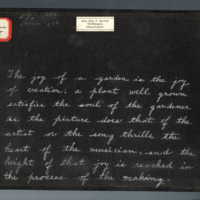 The joy of a garden is the joy
of creation; a plant well grown
satisfies the soul of the gardener
as the picture does that of the
artist or the song thrills the
heart of the musician, and the
height of that joy is reached in
the process of the making.